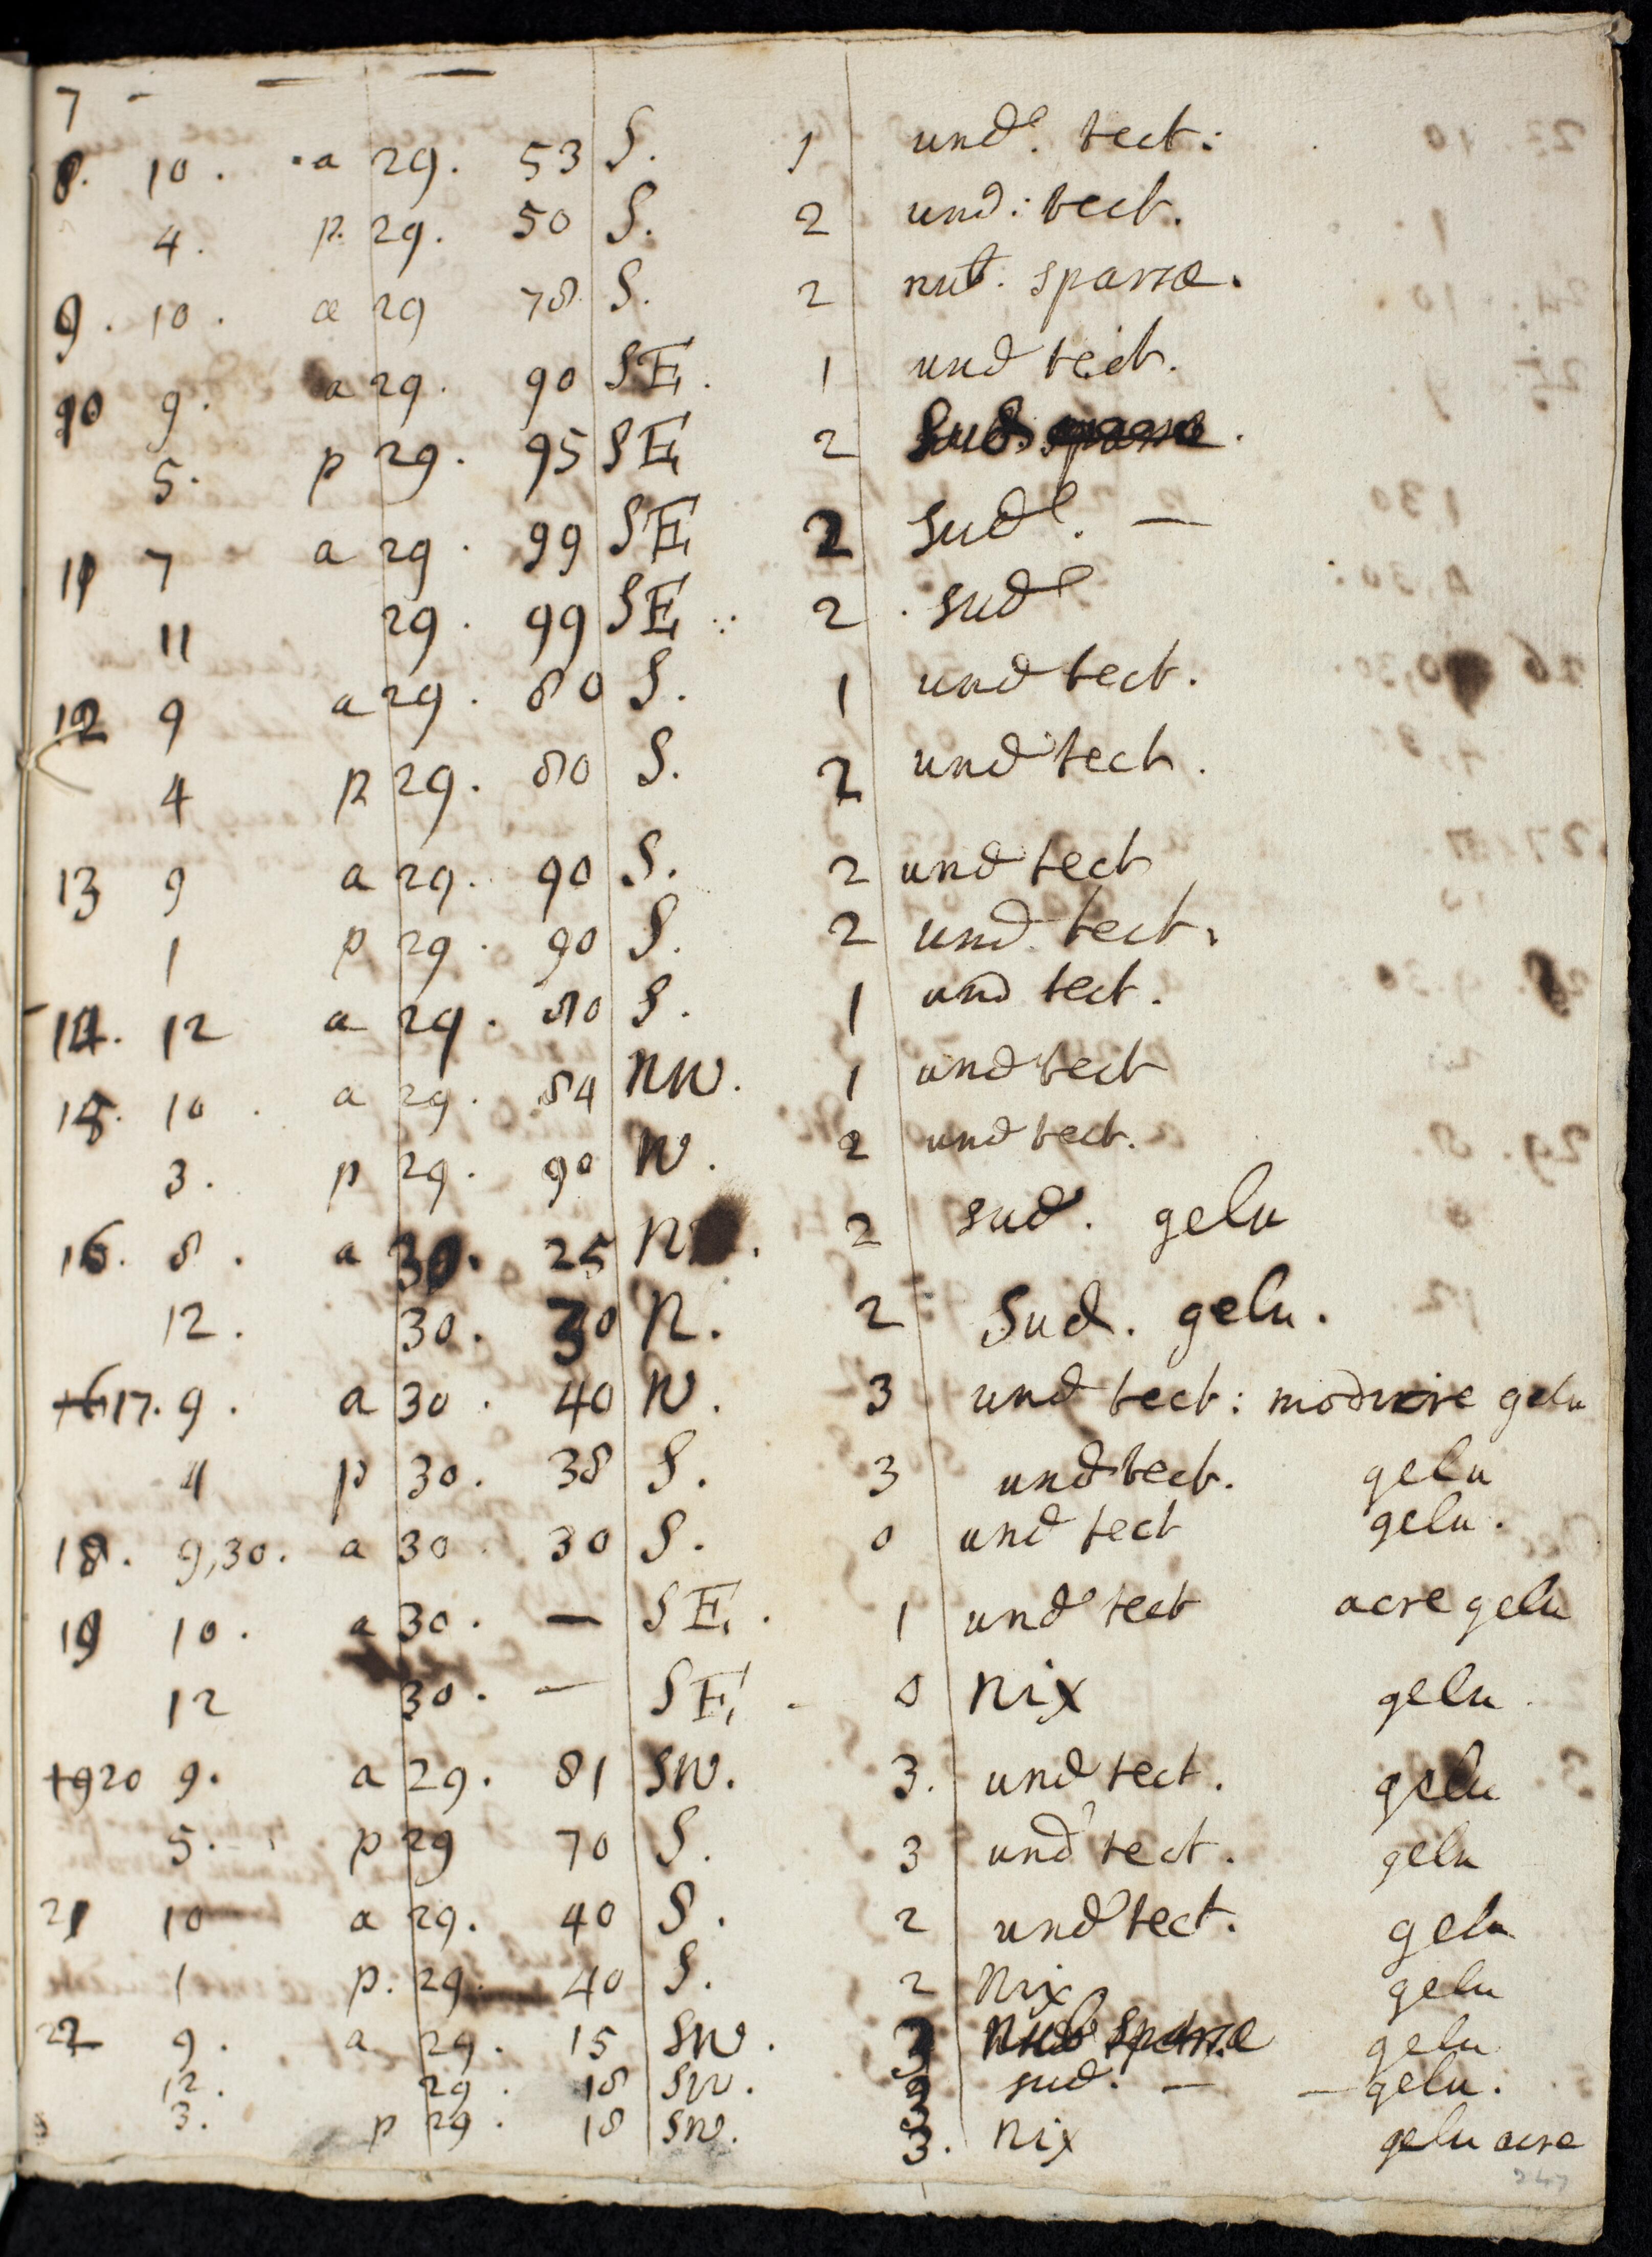 7 - — —
8. 10. a 29. 53 S. 1 und. tect:
4. p. 29. 50 S. 2 und: tect.
9. 10. a 29 78. S. 2 nub. sparsæ.
10 9. a 29. 90 SE. 1 und tect.
5. p 29. 95 SE 2 Sud.
11 7 a 29. 99 SE 2 Sud. —
11 29. 99 SE 2 sud
12 9 a 29. 80 S. 1 und tect.
4 p 29. 80 S. 2 und tect.
13 9 a 29. 90 S. 2 und tect
1 p 29. 90 S. 2 und tect.
14. 12 a 29. 80 S. 1 und tect.
15. 10. a 29. 84 NW. 1 und tect
3. p 29. 90 W. 2 und tect.
16. 8. a 30. 25 N. 2 sud. gelu
12. 30. 30 N. 2 Sud. gelu.
16 17. 9. a 30. 40 W. 3 und tect: gelu
4 p 30. 38 S. 3 und tect. gelu
18. 9,30. a 30. 30 S. 0 und tect gelu.
19 10. a 30. — SE. 1 und tect acre gelu
12 30. — SE. 0 nix gelu.
19 20 9. a 29. 81 SW. 3. und tect. gelu
5. p 29 70 S. 3 und tect. gelu
21 10 a 29. 40 S. 2 und tect. gelu
1 p. 29. 40 S. 2 Nix gelu
22 9. a 29. 15 SW. 3 nub sparsæ gelu
12. 29. 18 SW. 3 sud. — — gelu.
3. p 29. 18 SW. 3. nix gelu acre
247